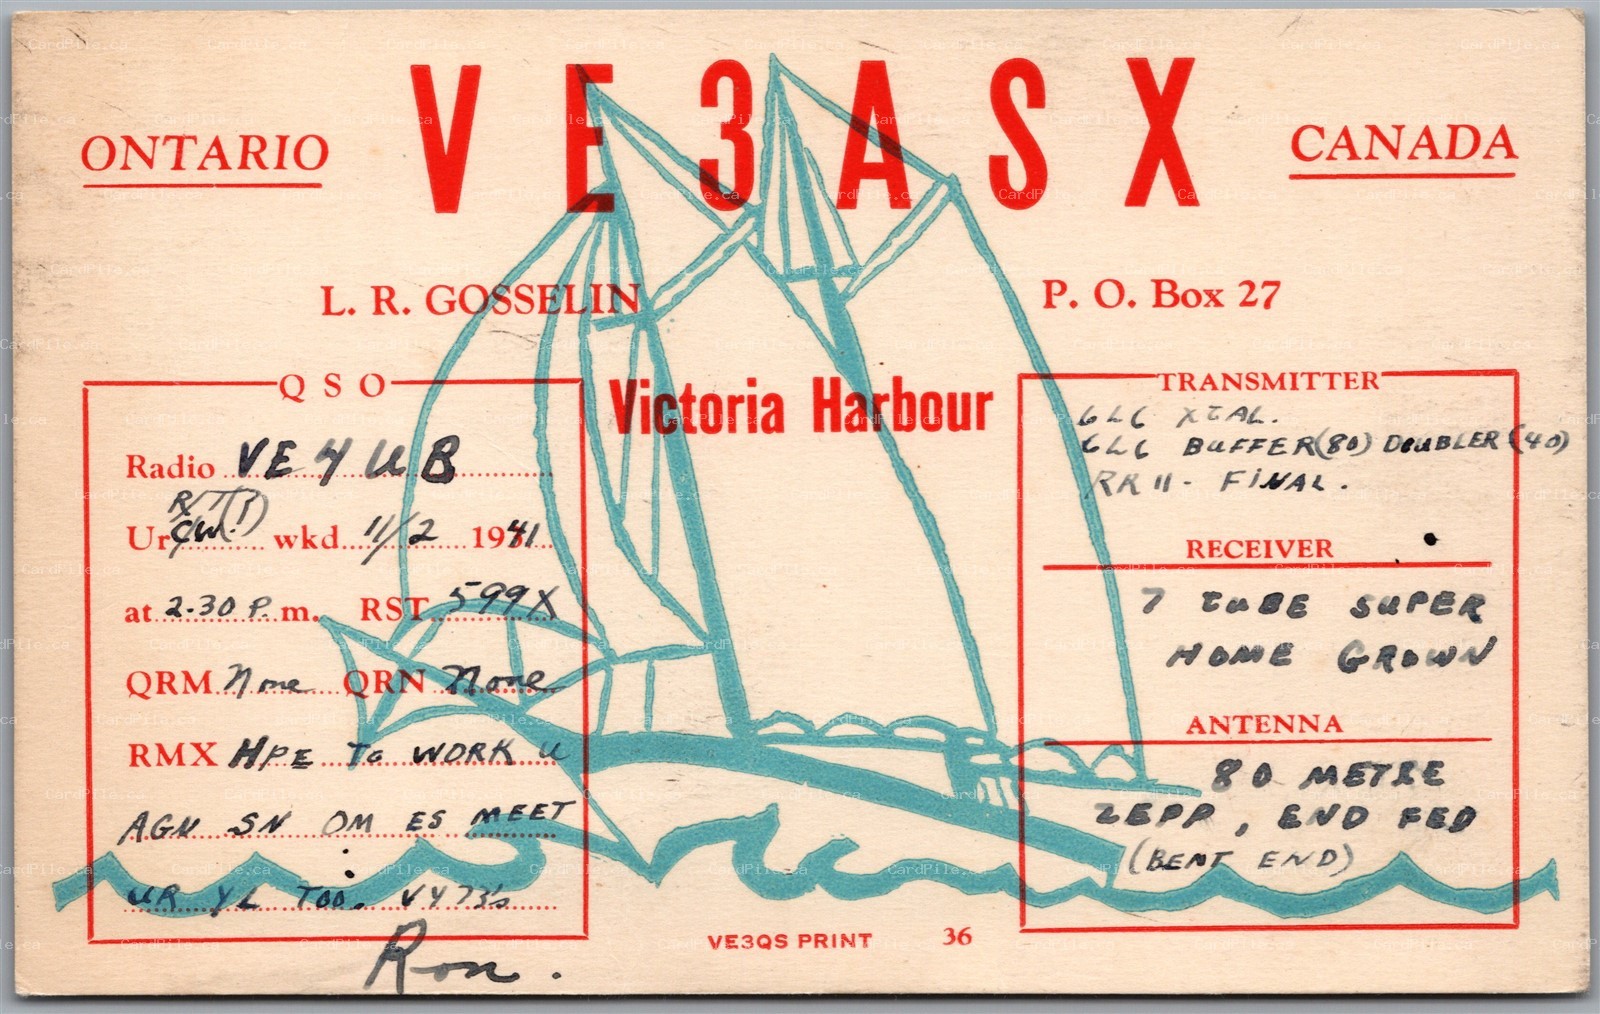 VE3ASX
ONTARIO
CANADA
L. R. GOSSELIN
P. O. Box 27
Victoria Harbour
QSO
Radio VE4UB
R/T(?)
Ur CW.) wkd 11/2 1941
at 2.30 P. m. RST 599X
QRM None QRN None
RMX HPE TO WORK U
AGN SN OM ES MEET
UR YL TOO. VY 73's
Ron.
TRANSMITTER
6L6 XTAL.
6L6 BUFFER(80) DOUBLER(40)
RR11 - FINAL.
RECEIVER
7 TUBE SUPER
HOME GROWN
ANTENNA
80 METRE
ZEPP, END FED
(BENT END)
VE3QS PRINT 36
CardPile.ca